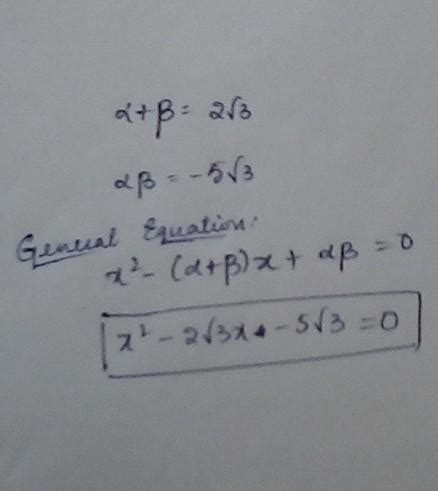 α+β = 2√3
αβ = -5√3
General Equation:
x² - (α+β)x + αβ = 0
x² - 2√3x - 5√3 = 0